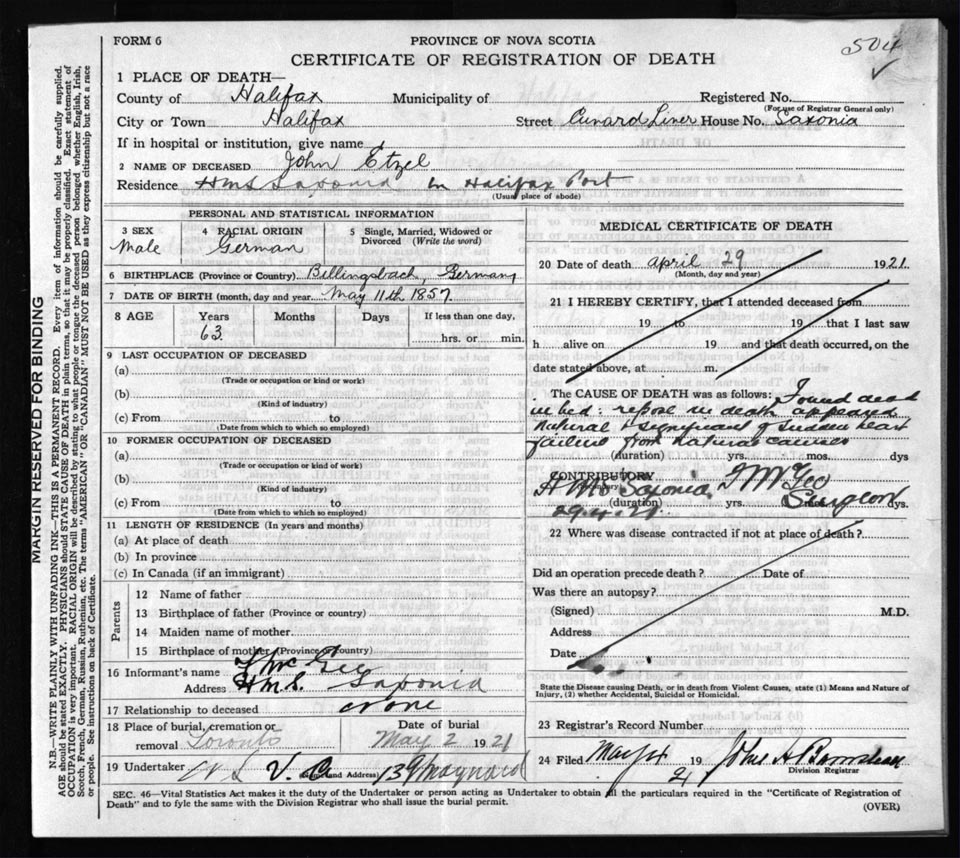 FORM 6
PROVINCE OF NOVA SCOTIA
504
CERTIFICATE OF REGISTRATION OF DEATH
1 PLACE OF DEATH—
County of Halifax Municipality of Registered No.
(For use of Registrar General only)
City or Town Halifax Street Cunard Liner House No. Saxonia
If in hospital or institution, give name
2 NAME OF DECEASED John Etzel
Residence HMS Saxonia in Halifax Port
(Usual place of abode)
PERSONAL AND STATISTICAL INFORMATION
3 SEX
Male
4 RACIAL ORIGIN
German
5 Single, Married, Widowed or Divorced (Write the word)
6 BIRTHPLACE (Province or Country) Billingsbach, Germany
7 DATE OF BIRTH (month, day and year May 11th 1857.
8 AGE Years Months Days If less than one day,
63 hrs. or min.
9 LAST OCCUPATION OF DECEASED
(a)
(Trade or occupation or kind or work)
(b)
(Kind of industry)
(c) From to
(Date from which to which so employed)
10 FORMER OCCUPATION OF DECEASED
(a)
(Trade or occupation or kind of work)
(b)
(Kind of industry)
(c) From to
(Date from which to which so employed)
11 LENGTH OF RESIDENCE (In years and months)
(a) At place of death
(b) In province
(c) In Canada (if an immigrant)
Parents
12 Name of father
13 Birthplace of father (Province or country)
14 Maiden name of mother
15 Birthplace of mother (Province or Country)
16 Informant's name McGee
Address H.M.S. Saxonia
17 Relationship to deceased none
18 Place of burial, cremation or removal Toronto
Date of burial
May 2 1921
19 Undertaker (Name and Address) 139 Maynard
MEDICAL CERTIFICATE OF DEATH
20 Date of death April 29 1921.
(Month, day and year)
21 I HEREBY CERTIFY, that I attended deceased from
19 to 19 that I last saw
h alive on 19 and that death occurred, on the
date stated above, at m.
The CAUSE OF DEATH was as follows: Found dead
in bed: repose in death appeared
natural & significant of sudden heart
failure from natural causes
(duration) yrs. mos. dys
CONTRIBUTORY
HMS Saxonia. McGee
(duration) yrs. Surgeon dys.
29.4.21.
22 Where was disease contracted if not at place of death?
Did an operation precede death? Date of
Was there an autopsy?
(Signed) M.D.
Address
Date
State the Disease causing Death, or in death from Violent Causes, state (1) Means and Nature of Injury, (2) whether Accidental, Suicidal or Homicidal.
23 Registrar's Record Number
24 Filed May 19 21 John A
Division Registrar
SEC. 46—Vital Statistics Act makes it the duty of the Undertaker or person acting as Undertaker to obtain all the particulars required in the "Certificate of Registration of
Death" and to fyle the same with the Division Registrar who shall issue the burial permit.
(OVER)
MARGIN RESERVED FOR BINDING
N.B.—WRITE PLAINLY WITH UNFADING INK—THIS IS A PERMANENT RECORD. Every item of information should be carefully supplied.
AGE should be stated EXACTLY. PHYSICIANS should STATE CAUSE OF DEATH in plain terms, so that it may be properly classified. Exact statement of
OCCUPATION is very important. RACIAL ORIGIN will be described by stating to what people or tongue the deceased person belonged whether English, Irish,
Scotch, French, German, Russian, Ruthenian, etc. The terms "AMERICAN" OR "CANADIAN" MUST NOT BE USED as they express citizenship but not a race
or people. See instructions on back of Certificate.